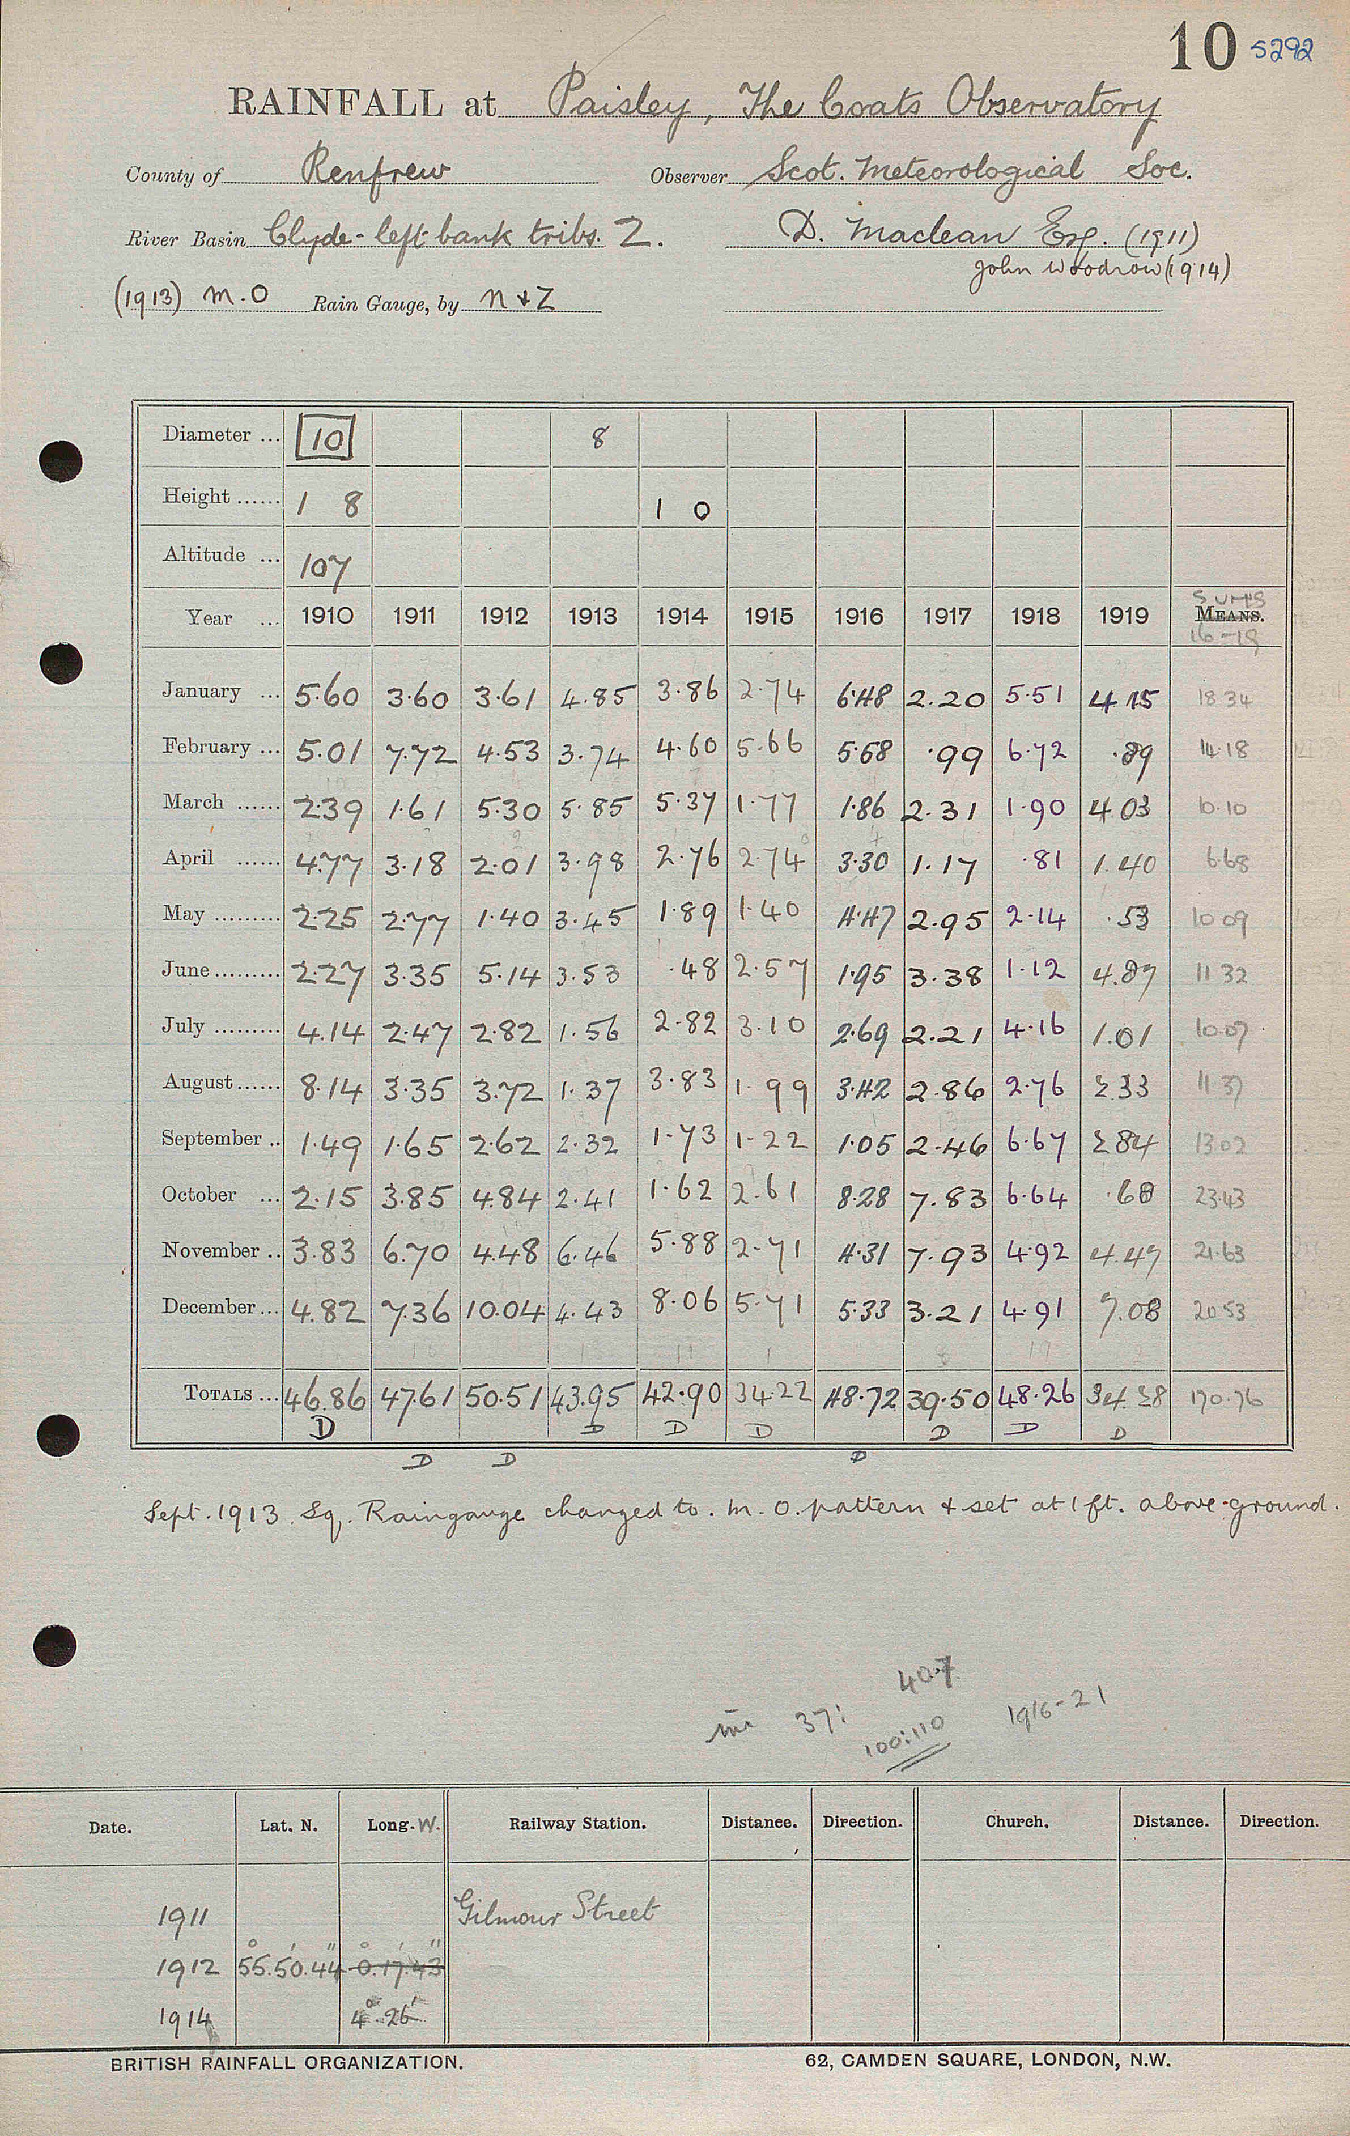 10 5292
RAINFALL at Paisley, The Coats Observatory
County of Renfrew Observer Scot. Meteorological Soc.
River Basin Clyde - left bank tribs. 2. D. Maclean Esq. (1911)
John Woodrow (1914)
(1913) M.O Rain Gauge, by N & Z
Diameter ... 10 8
Height ...... 1 8 1 0
Altitude ... 107
Year ... 1910 1911 1912 1913 1914 1915 1916 1917 1918 1919 SUMS MEANS. 16-19
January ... 5.60 3.60 3.61 4.85 3.86 2.74 6.48 2.20 5.51 4.15 18 34
February ... 5.01 7.72 4.53 3.74 4.60 5.66 5.68 .99 6.72 .89 14.18
March ...... 2.39 1.61 5.30 5.85 5.37 1.77 1.86 2.31 1.90 4.03 10.10
April ...... 4.77 3.18 2.01 3.98 2.76 2.74 3.30 1.17 .81 1.40 6.68
May ......... 2.25 2.77 1.40 3.45 1.89 1.40 4.47 2.95 2.14 .53 10 09
June ......... 2.27 3.35 5.14 3.53 .48 2.57 1.95 3.38 1.12 4.87 11 32
July ......... 4.14 2.47 2.82 1.56 2.82 3.10 2.69 2.21 4.16 1.01 10.07
August ...... 8.14 3.35 3.72 1.37 3.83 1.99 3.42 2.86 2.76 2.33 11.37
September .. 1.49 1.65 2.62 2.32 1.73 1.22 1.05 2.46 6.67 2.84 13 02
October ... 2.15 3.85 4.84 2.41 1.62 2.61 8.28 7.83 6.64 .68 23.43
November .. 3.83 6.70 4.48 6.46 5.88 2.71 4.31 7.93 4.92 4.47 21.63
December ... 4.82 7.36 10.04 4.43 8.06 5.71 5.33 3.21 4.91 7.08 20 53
TOTALS ... 46.86 47.61 50.51 43.95 42.90 34.22 48.72 39.50 48.26 34.28 170.76
D D D D D D D
D D D
Sept. 1913 Sq. Raingauge changed to. M.O. pattern & set at 1 ft. above ground.
40.7
37: 1916-21
100:110
Date. Lat. N. Long. W. Railway Station. Distance. Direction. Church. Distance. Direction.
1911 Gilmour Street
1912 55°.50'.44" 0°.17'.43"
1914 4° 26'
BRITISH RAINFALL ORGANIZATION. 62, CAMDEN SQUARE, LONDON, N.W.